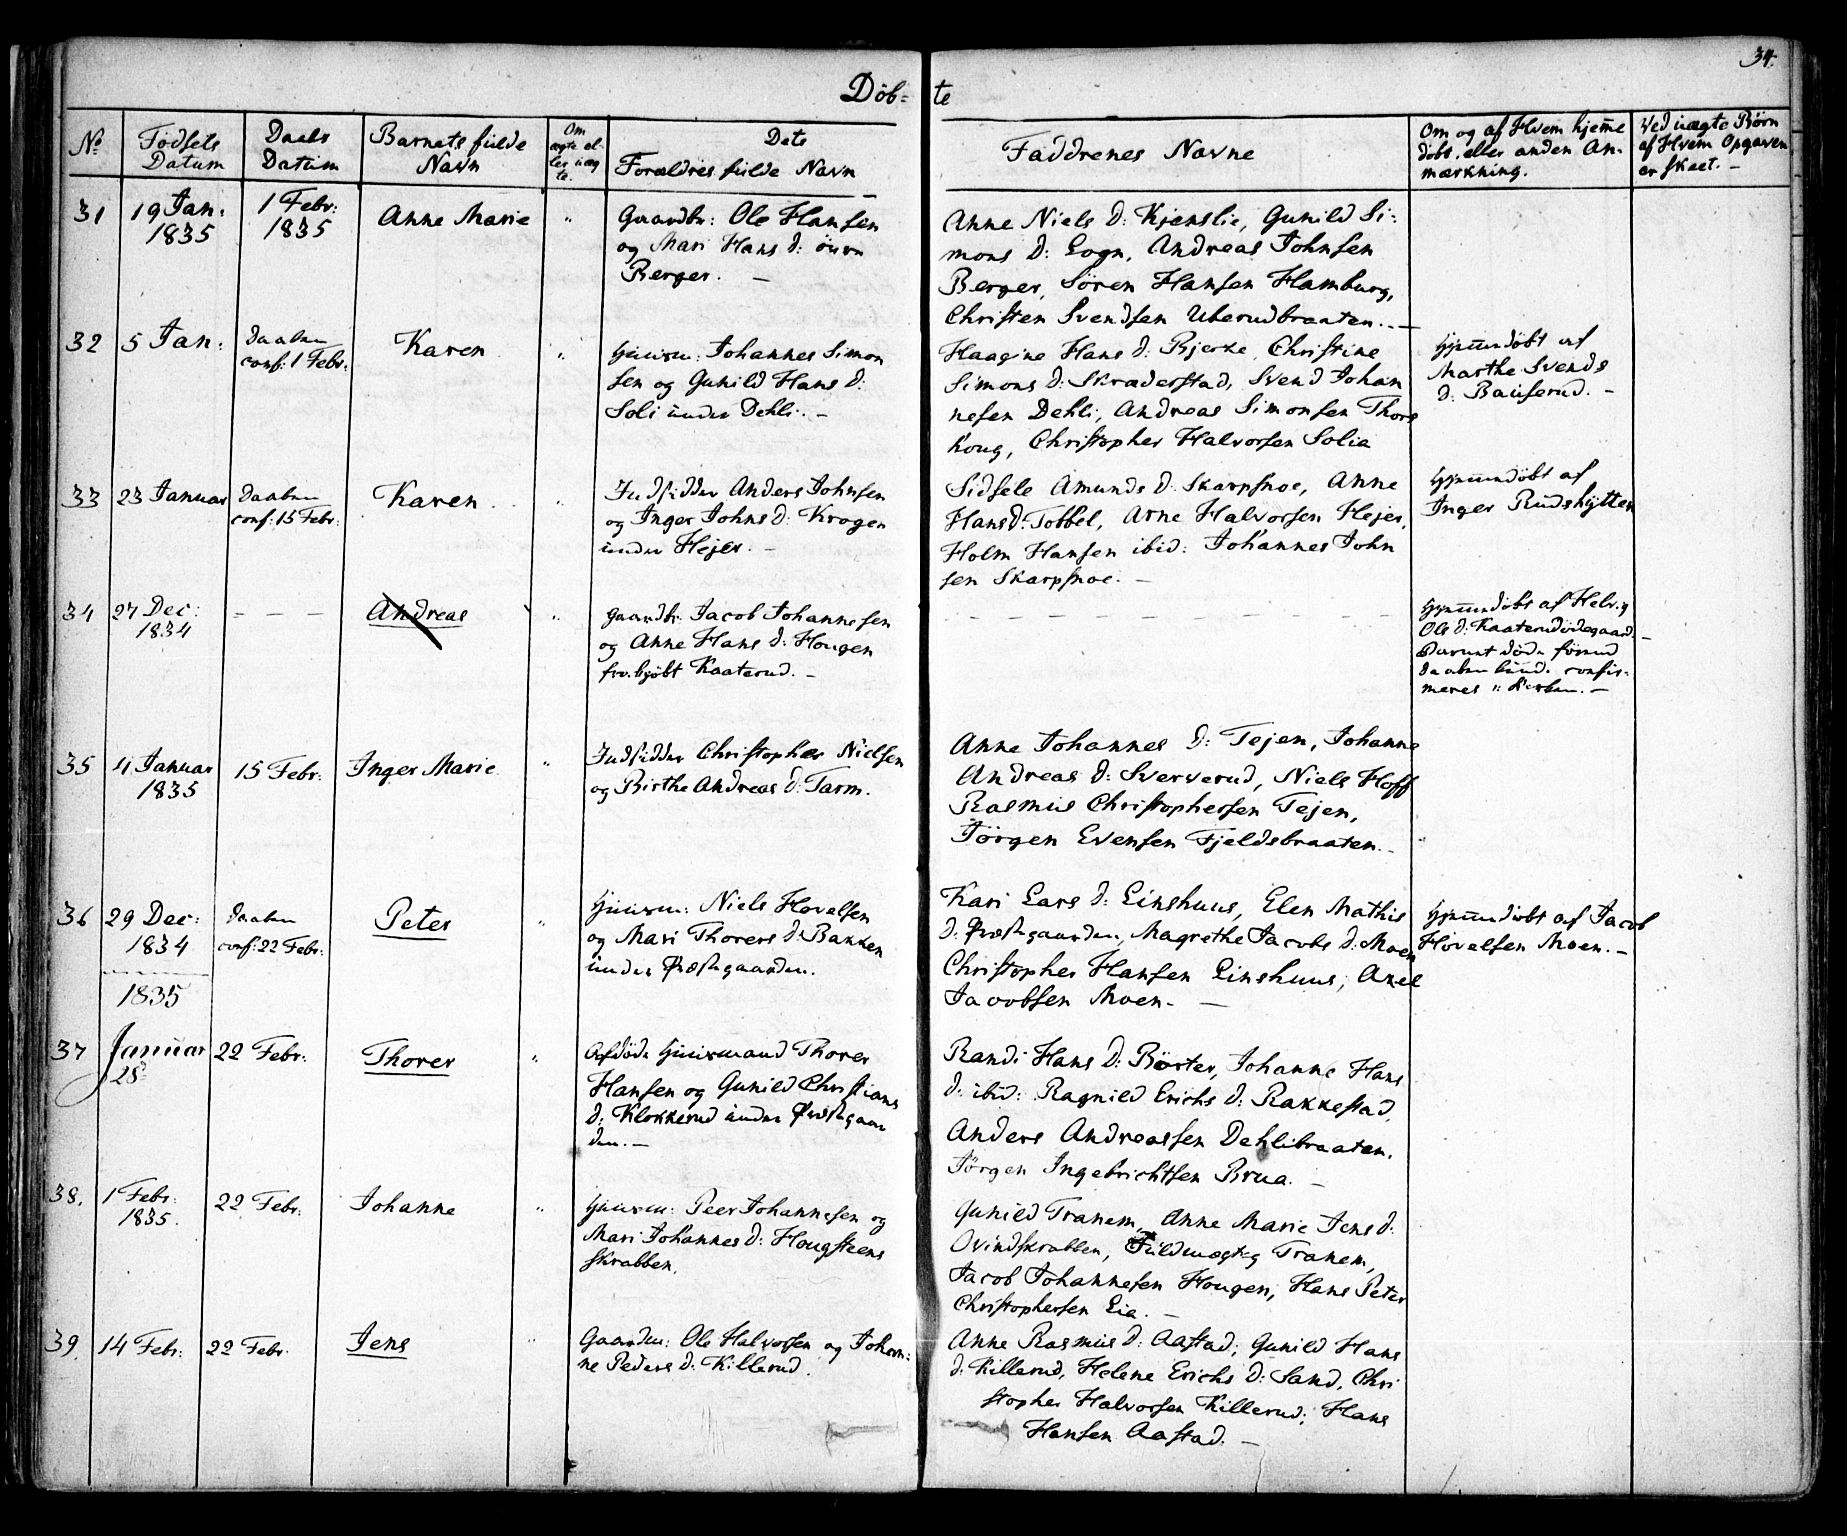 34.
Döb= te
No
Födsels
Datum
Daabs
Datum
Barnets fulde
Navn
Om
ægte el-
ler uæg
te.
Dets
Forældres fulde Navn
Faddrenes Navne
Om og af Hvem hjemme
döbt, eller anden An-
mærkning.
Ved uægte Börn
af Hvem Opgaven
er skeet. -
31
19 Jan:
1835
1 Febr:
1835
Anne Marie
"
Gaardbr: Ole Hansen
og Mari Hans d: övre
Berger. -
Anne Niels d: Kjenslie, Gunild Si-
mons d: Sogn, Andreas Johnsen
Berger, Sören Hansen Hamburg,
Christen Svendsen Uberudbraaten. -
32
5 Jan:
Daaben
conf: 1 Febr:
Karen
"
Huusm: Johannes Simon
sen og Gunild Hans d:
Soli under Dehli. -
Haagine Hans d: Bjerke, Christine
Simons d: Skræderstad, Svend Johan
nesen Dehli, Andreas Simonsen Thors
houg, Christopher Halvorsen Solia
Hjemmedöbt af
Marthe Svends
d: Bauserud. -
33
23 Januar
Daaben
conf: 15 Febr:
Karen
"
Indsidder Anders Johnsen
og Inger Johns d: Krogen
under Hejer. -
Sidsele Amunds d: Skarpsnoe, Anne
Hans d: Tobbel, Arne Halvorsen Hejer,
Holm Hansen ibid: Johannes John
sen Skarpsnoe. -
Hjemmedöbt af
Inger Rudshytten
34
27 Dec:
1834
- - -
Andreas
"
Gaardbr: Jacob Johannesen
og Anne Hans d: Hougen
Kaaterud. -
- - - - - - - -
Hjemmedöbt af Helvig
Ols d: Kaaterudödegaard. -
Barnet döde förend
Daaben kunde confir-
meres i Kirken. -
35
4 Januar
1835
15 Febr:
Inger Marie
"
Indsidder Christopher Nielsen
og Birthe Andreas d: Tarm.
Anne Johannes d: Tejen, Johanne
Andreas d: Sververud, Niels Hoff
Rasmus Christophersen Tejen,
Jörgen Evensen Fjeldsbraaten. -
36
29 Dec:
1834
Daaben
conf: 22 Febr:
Peter
"
Huusm: Niels Hovelsen
og Mari Thorers d: Bakken
under Præstegaarden.
Kari Lars d: Linshuus, Elen Mathis
d: Præstegaarden, Magrethe Jacobs d: Moen
Christopher Hansen Linshuus, Axel
Jacobsen Moen. -
Hjemmedöbt af Jacob
Hovelsen Moen. -
1835
37
Januar
28
22 Febr:
Thorer
"
Afdöde Huusmand Thorer
Hansen og Gunild Christians
d: Klokkerud under Præstegaar
den. -
Randi Hans d: Börter, Johanne Hans
d: ibid: Ragnild Erichs d: Rakkestad,
Anders Andreassen Dehlibraaten,
Jörgen Ingebrichtsen Brua. -
38.
1 Febr:
1835.
22 Febr:
Johanne
"
Huusm: Peer Johannesen og
Mari Johannes d: Hougsteens
skrabben.
Gunild Tranem, Anne Marie Jens d:
Ovindskrabben, Fuldmægtig Tranem,
Jacob Johannesen Hougen, Hans Peter
Christophersen Lia. -
39.
14 Febr:
22 Febr:
Jens
"
Gaardm: Ole Halvorsen og Johan-
ne Peders d: Killerud.
Anne Rasmus d: Aastad, Gunild Hans
d: Killerud, Helene Erichs d: Sand, Chri
stopher Halvorsen Killerud, Hans
Hansen Aastad. -